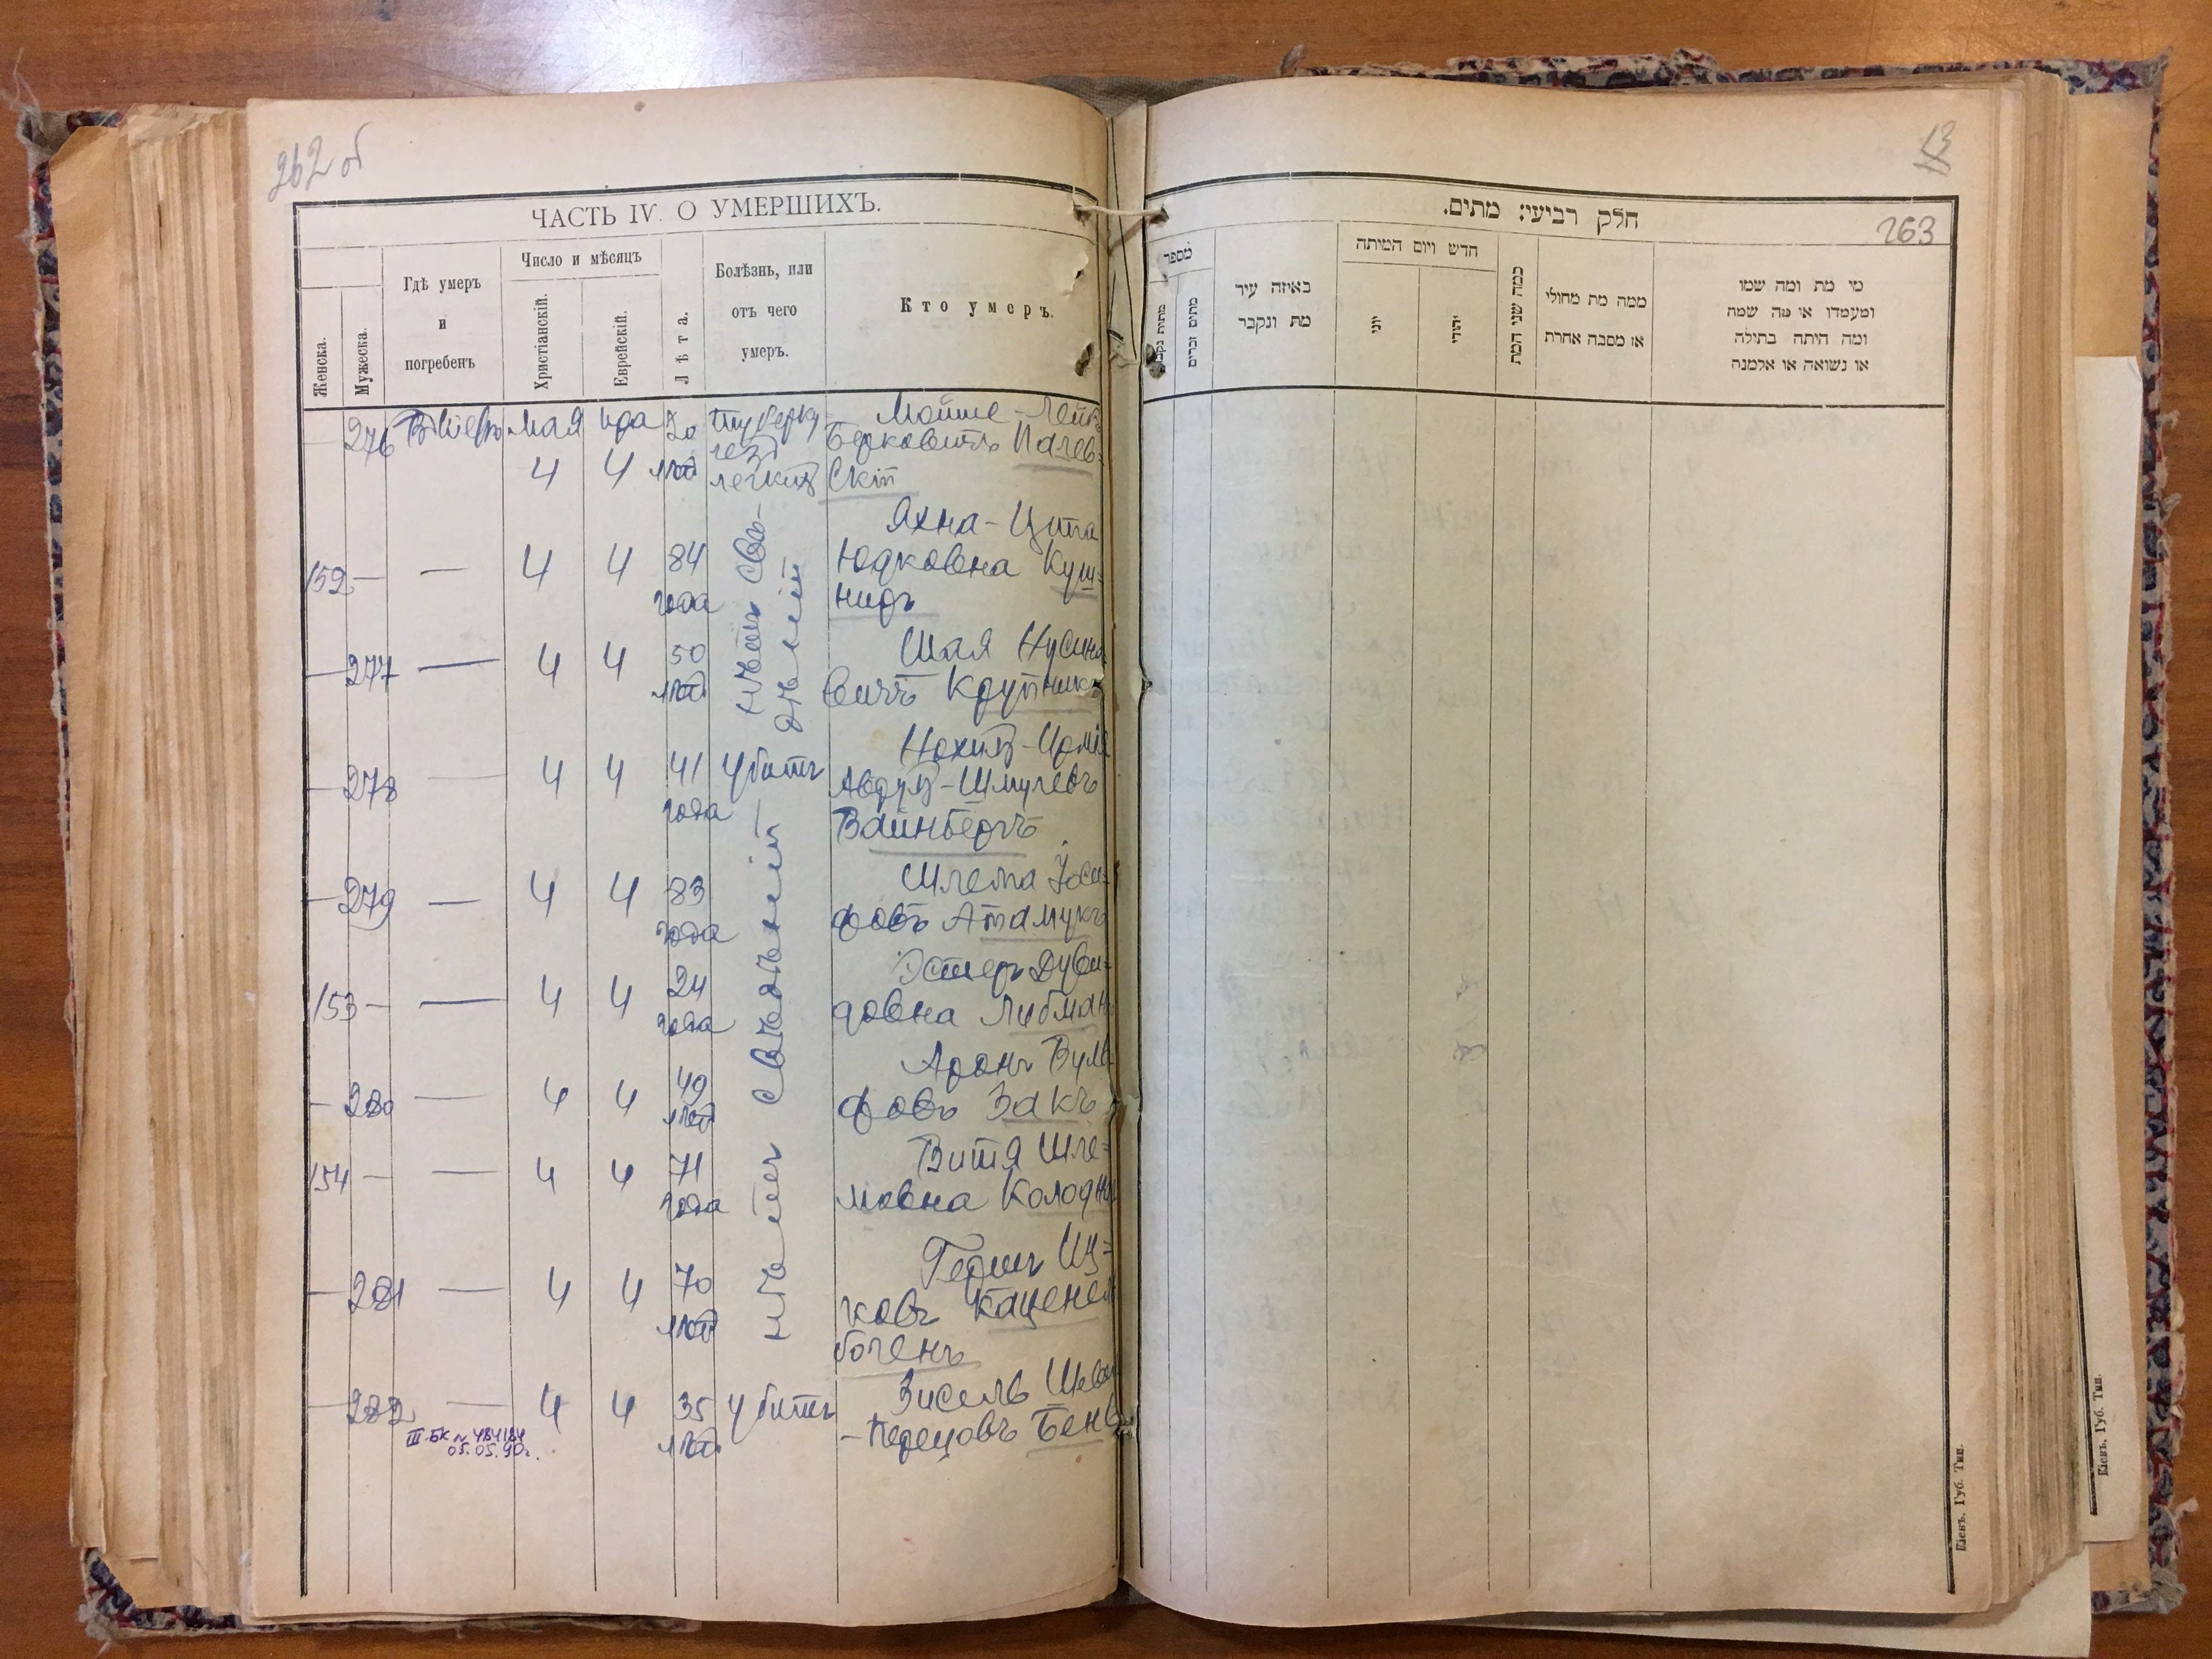 262 об
ЧАСТЬ IV. О УМЕРШИХЪ.
Женска.
Мужеска.
Гдѣ умеръ
и
погребенъ
Число и мѣсяцъ
Христіанскій.
Еврейскій.
Лѣта.
Болѣзнь, или
отъ чего
умеръ.
Кто умеръ.
— 276 Мая 4 4 лѣтъ легкихъ
Берковичъ Палев=
скій
152 — — 4 4 84 года
Яхна-Ципа
Юдковна Куш=
ниръ
— 277 — 4 4 50 лѣтъ
Шая Нусино
вичъ Крупникъ
нѣтъ свѣ-
дѣній
— 278 — 4 4 41 года Убитъ
Аврум-Шмулевъ
Вайнбергъ
— 279 — 4 4 83 года
Шлема Іоси=
фовъ Атамукъ
153 — — 4 4 24 года
Эстеръ Дуви=
довна Либман
— 280 — 4 4 49 лѣтъ
Аронъ Вуль
фовъ Закъ
154 — — 4 4 71 года
Витя Шле=
мовна Колодна
— 281 — 4 4 70 лѣтъ
Гершъ Иц=
ковъ Каценел
богенъ
нѣтъ свѣдѣній —
— 282 — 4 4 35 лѣтъ Убитъ
Зисель
-Перецовъ Бен
III-БК № 484184
05.05.90г.
263
חלק רביעי: מתים.
מספר
מתים זכרים
באיזה עיר
מת ונקבר
חדש ויום המיתה
יוני
יהודי
כמה שני המת
ממה מת מחולי
או מסבה אחרת
מי מת ומה שמו
ומעמדו או מה שמה
ומה היתה בתולה
או נשואה או אלמנה
Кіевъ. Губ. Тип.
Кіевъ. Губ. Тип.